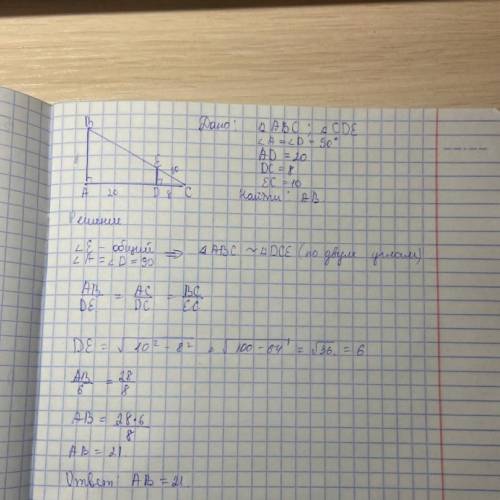 B
Дано: △ABC; △CDE
∠A = ∠D = 90°
AD = 20
DC = 8
EC = 10
Найти: AB
E 10
A 20 D 8 C
Решение
∠E – общий
∠A = ∠D = 90 ⇒ △ABC ~ △DCE (по двум углам)
AB/DE = AC/DC = BC/EC
DE = √10² - 8² = √100 - 64 = √36 = 6
AB/6 = 28/8
AB = 28·6/8
AB = 21
Ответ AB = 21